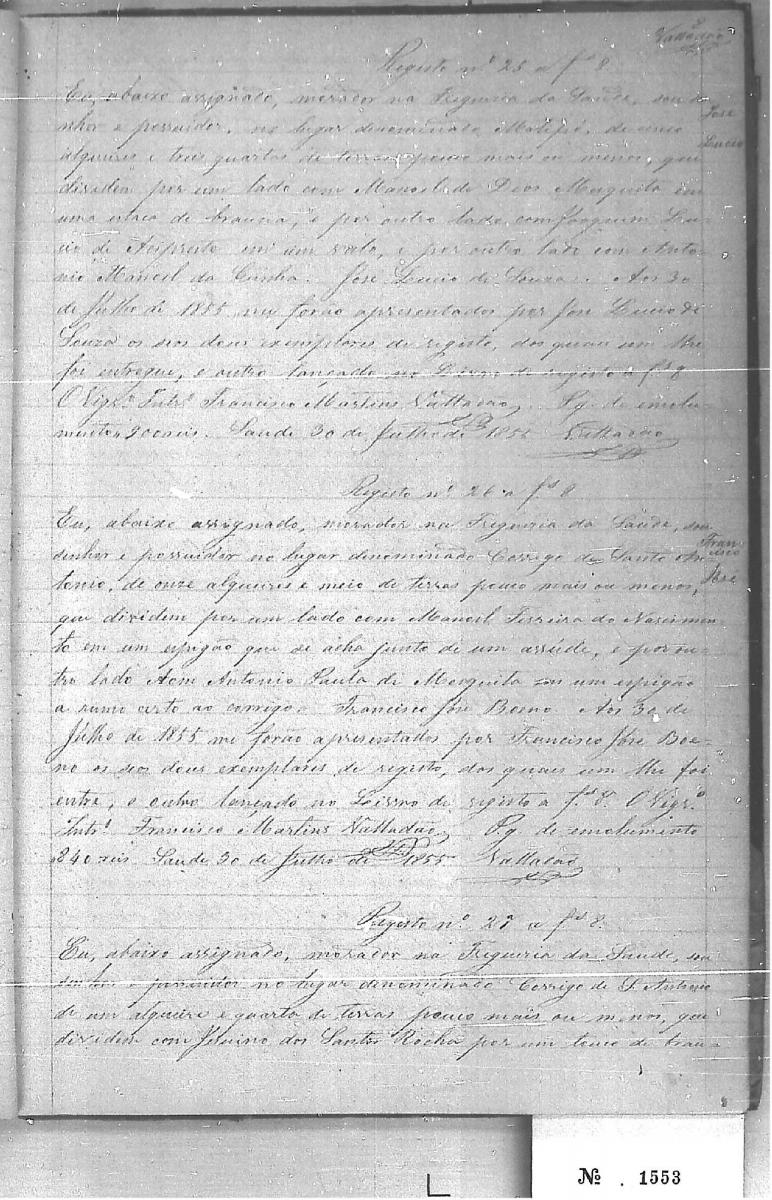 Valladão
Registo nº 25 a fˢ 8.
Eu, abaixo assignado, morador na Freguezia da Saude, sou se-
nhor e possuidor, no lugar denominado Matipó, de cinco
José
Lucio
alqueires e tres quartos de terras pouco mais ou menos, que
dividem por um lado com Manoel de Deos Mesquita em
uma de brauna, e por outro lado com Joaquim Lu-
cio de em um vallo, e por outro lado com Anto-
nio Manoel da Cunha. José Lucio de Souza. Aos 30
de Julho de 1855 me forão apresentados por José Lucio de
Souza os seos dous exemplares de registo, dos quaes um lhe
foi entregue, e outro lançado no Livro de registo a fˢ 8
O Vigrº Intrº Francisco Martins Valladão. Pg. de emolu-
mentos 900 reis. Saude 30 de Julho de 1855 Valladão
Registo nº 26 a fˢ 8
Eu, abaixo assignado, morador na Freguezia da Saude, sou
senhor e possuidor no lugar denominado Corrego de Santo An-
Fran-
cisco
José
tonio, de onze alqueires e meio de terras pouco mais ou menos,
que dividem por um lado com Manoel Ferreira do Nascimen-
to em um espigão que se acha junto de um assude, e por ou-
tro lado com Antonio Paula de Mesquita em um espigão
a rumo certo ao corrigo. Francisco José Boeno. Aos 30 de
Julho de 1855 me forão apresentados por Francisco José Boe-
no os seos dous exemplares de registo, dos quaes um lhe foi
entre, e outro lançado no Livro de registo a fˢ 8. O Vigrº
Intrº Francisco Martins Valladão Pg. de emolumento
840 reis. Saude 30 de Julho de 1855 Valladão
Registo nº 27 a fˢ 8.
Eu, abaixo assignado, morador na Freguezia da Saude, sou
senhor e possuidor no lugar denominado Corrigo de S. Antonio
de um alqueire e quarta de terras pouco mais ou menos, que
dividem com Jesuino dos Santos Rocha por um toco de brau-
Nº . 1553